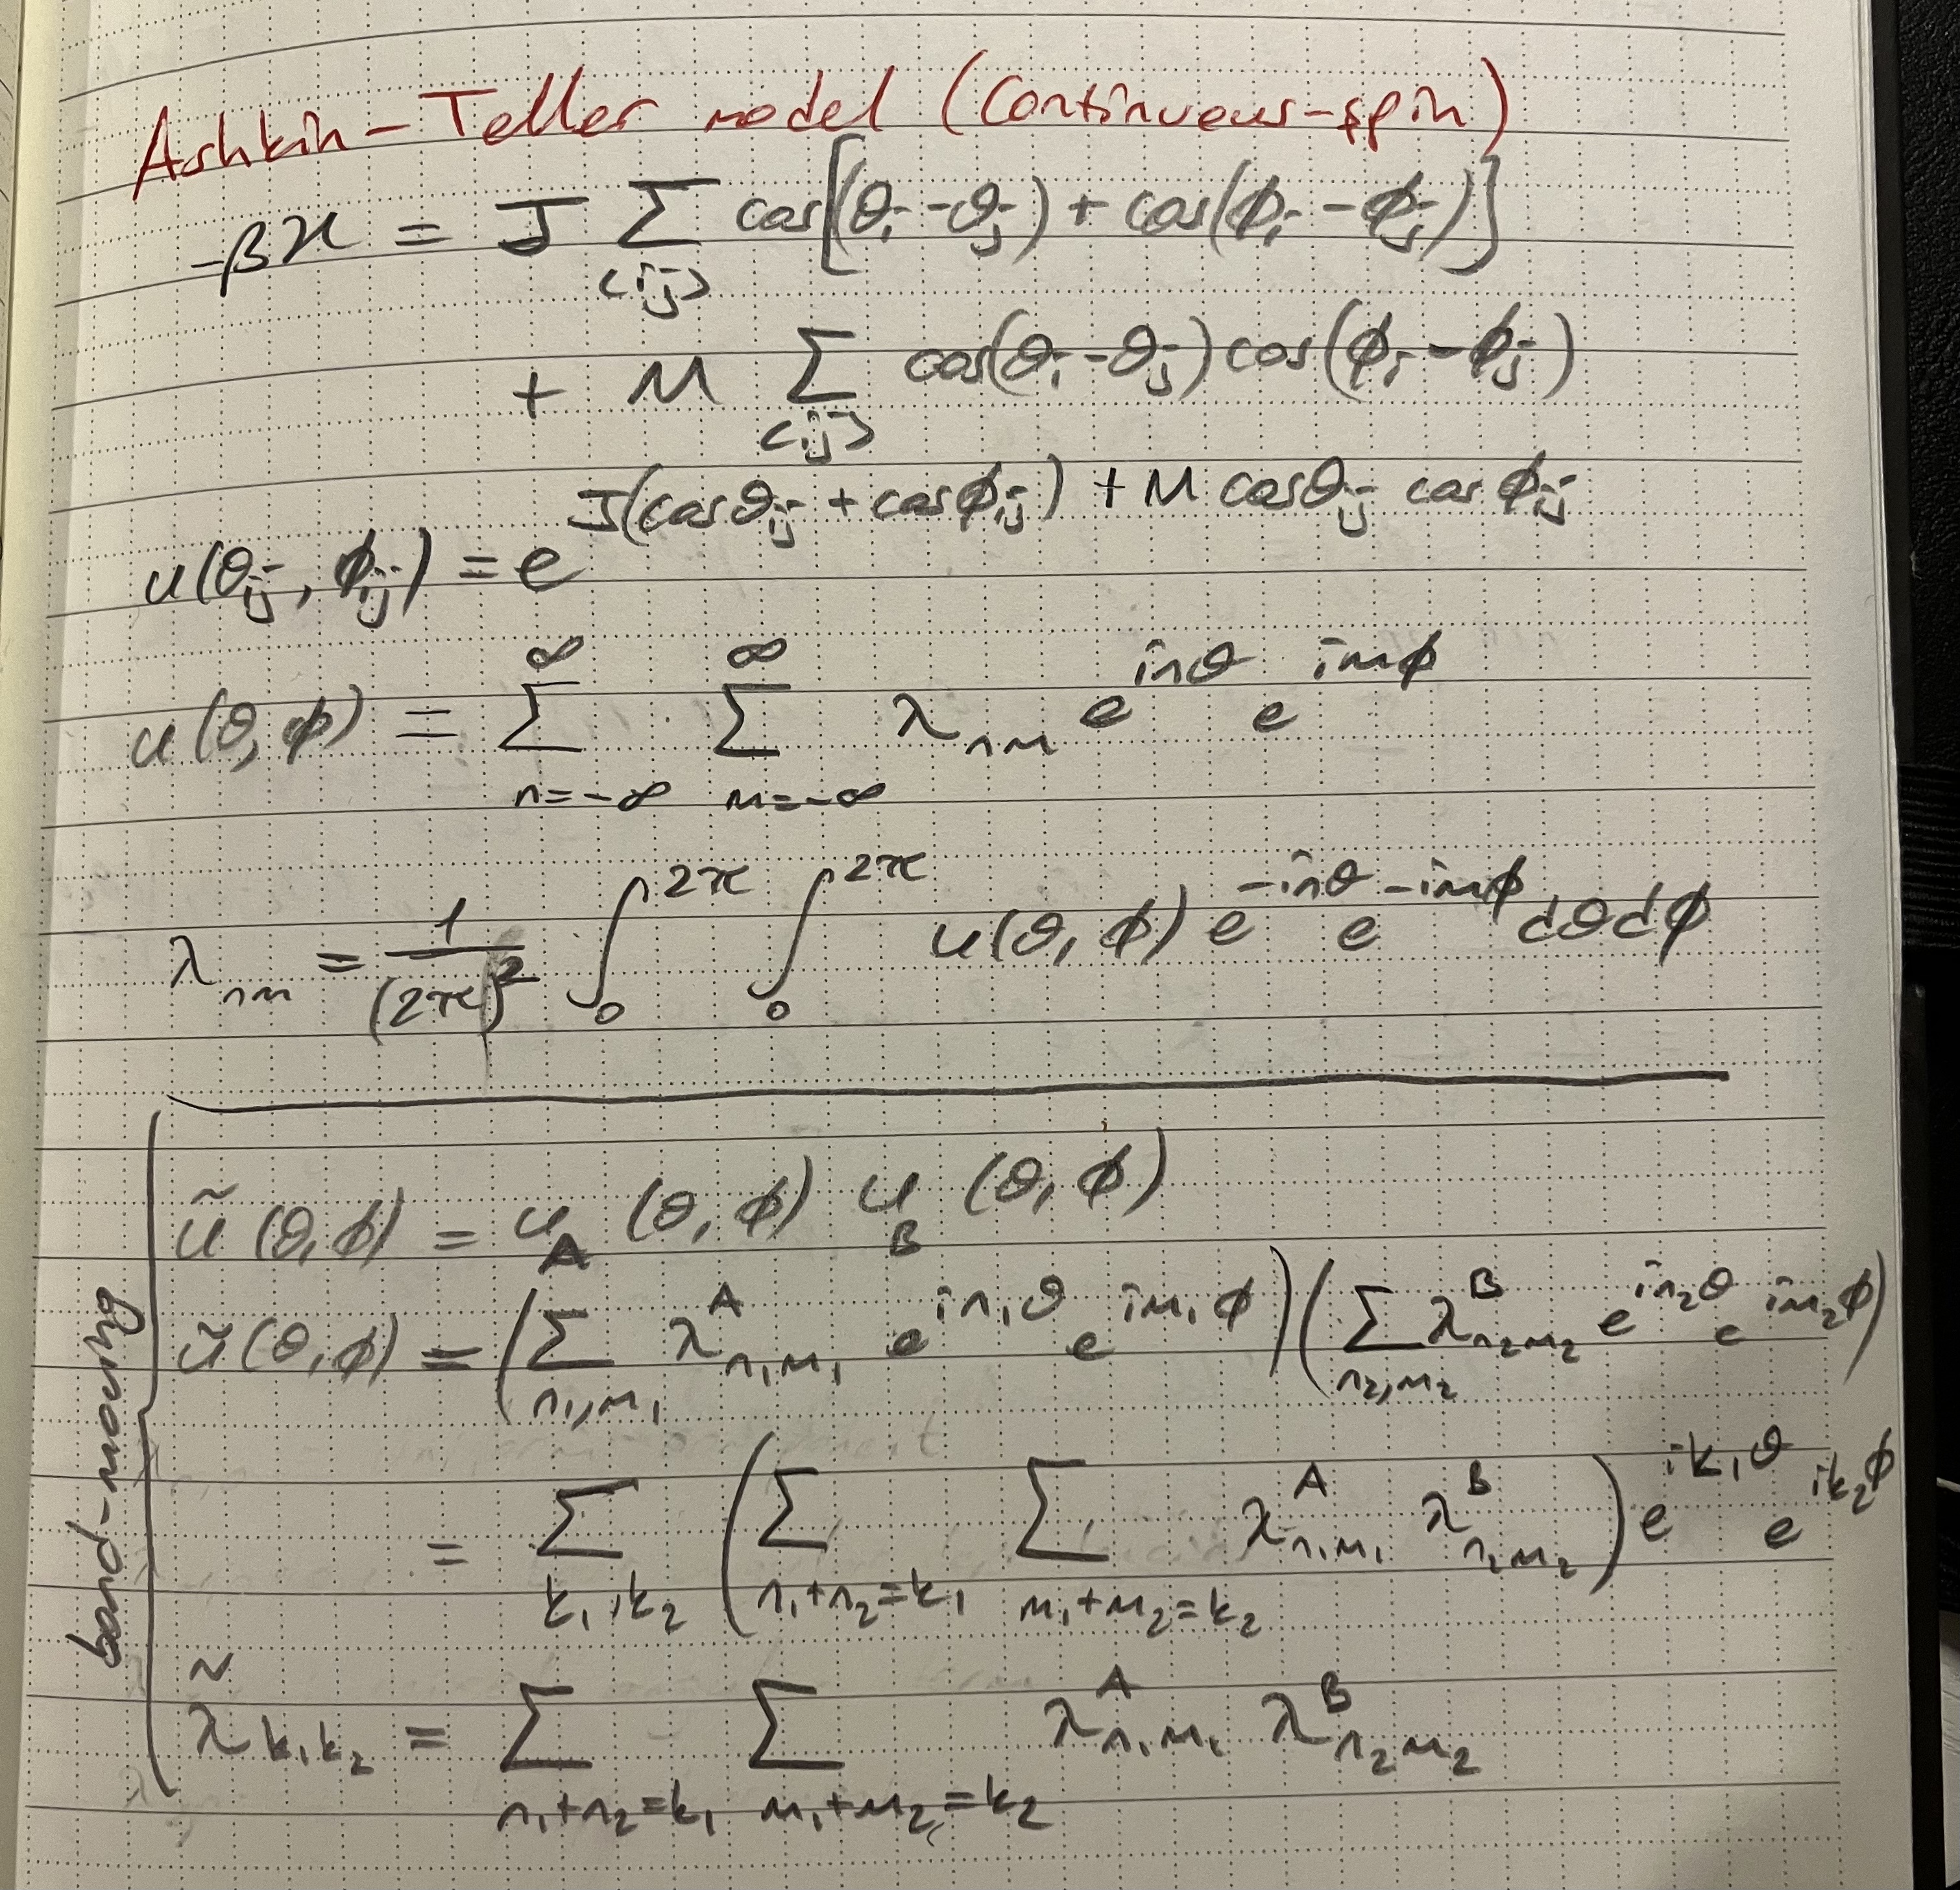 Ashkin-Teller model (Continuous-spin)
-βℋ = J ∑_{<ij>} cos[(θ_i - θ_j) + cos(ϕ_i - ϕ_j)]
+ M ∑_{<ij>} cos(θ_i - θ_j) cos(ϕ_i - ϕ_j)
u(θ_{ij}, ϕ_{ij}) = e^{J(cosθ_{ij} + cosϕ_{ij}) + M cosθ_{ij} cosϕ_{ij}}
u(θ, ϕ) = ∑_{n=-∞}^{∞} ∑_{m=-∞}^{∞} λ_{nm} e^{inθ} e^{imϕ}
λ_{nm} = 1/(2π)^2 ∫_0^{2π} ∫_0^{2π} u(θ, ϕ) e^{-inθ} e^{-imϕ} dθdϕ
bond-moving
ũ(θ, ϕ) = u_A(θ, ϕ) u_B(θ, ϕ)
ũ(θ, ϕ) = (∑_{n_1,m_1} λ^A_{n_1,m_1} e^{in_1θ} e^{im_1ϕ})(∑_{n_2,m_2} λ^B_{n_2m_2} e^{in_2θ} e^{im_2ϕ})
= ∑_{k_1,k_2} (∑_{n_1+n_2=k_1} ∑_{m_1+m_2=k_2} λ^A_{n_1m_1} λ^B_{n_2m_2}) e^{ik_1θ} e^{ik_2ϕ}
λ̃_{k_1k_2} = ∑_{n_1+n_2=k_1} ∑_{m_1+m_2=k_2} λ^A_{n_1m_1} λ^B_{n_2m_2}